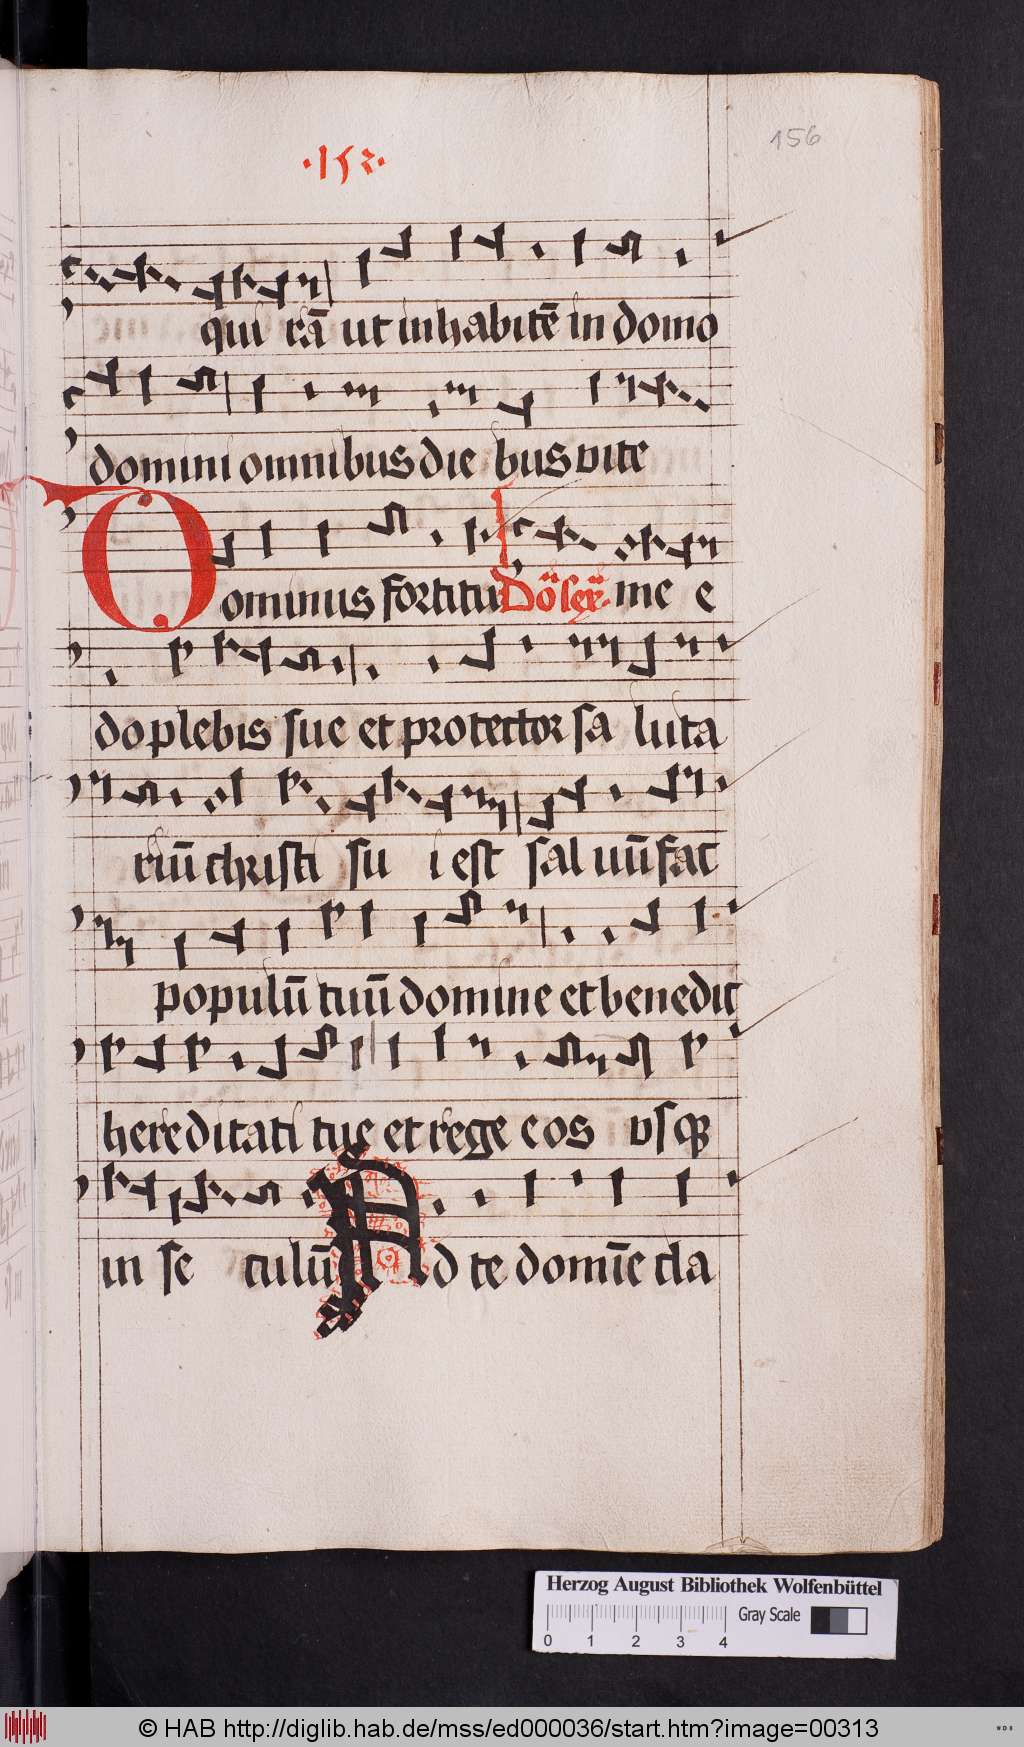 ·152·
156
qui rā ut inhabitē in domo
domini omnibus die bus vite
Dominus fortitu me e
do plebis sue et protector sa luta
riū christi su i est sal uū fac
populū tuū domine et benedic
hereditati tue et rege eos vsq
in se culū Ad te domīe cla
Herzog August Bibliothek Wolfenbüttel
0 1 2 3 4 Gray Scale
© HAB http://diglib.hab.de/mss/ed000036/start.htm?image=00313